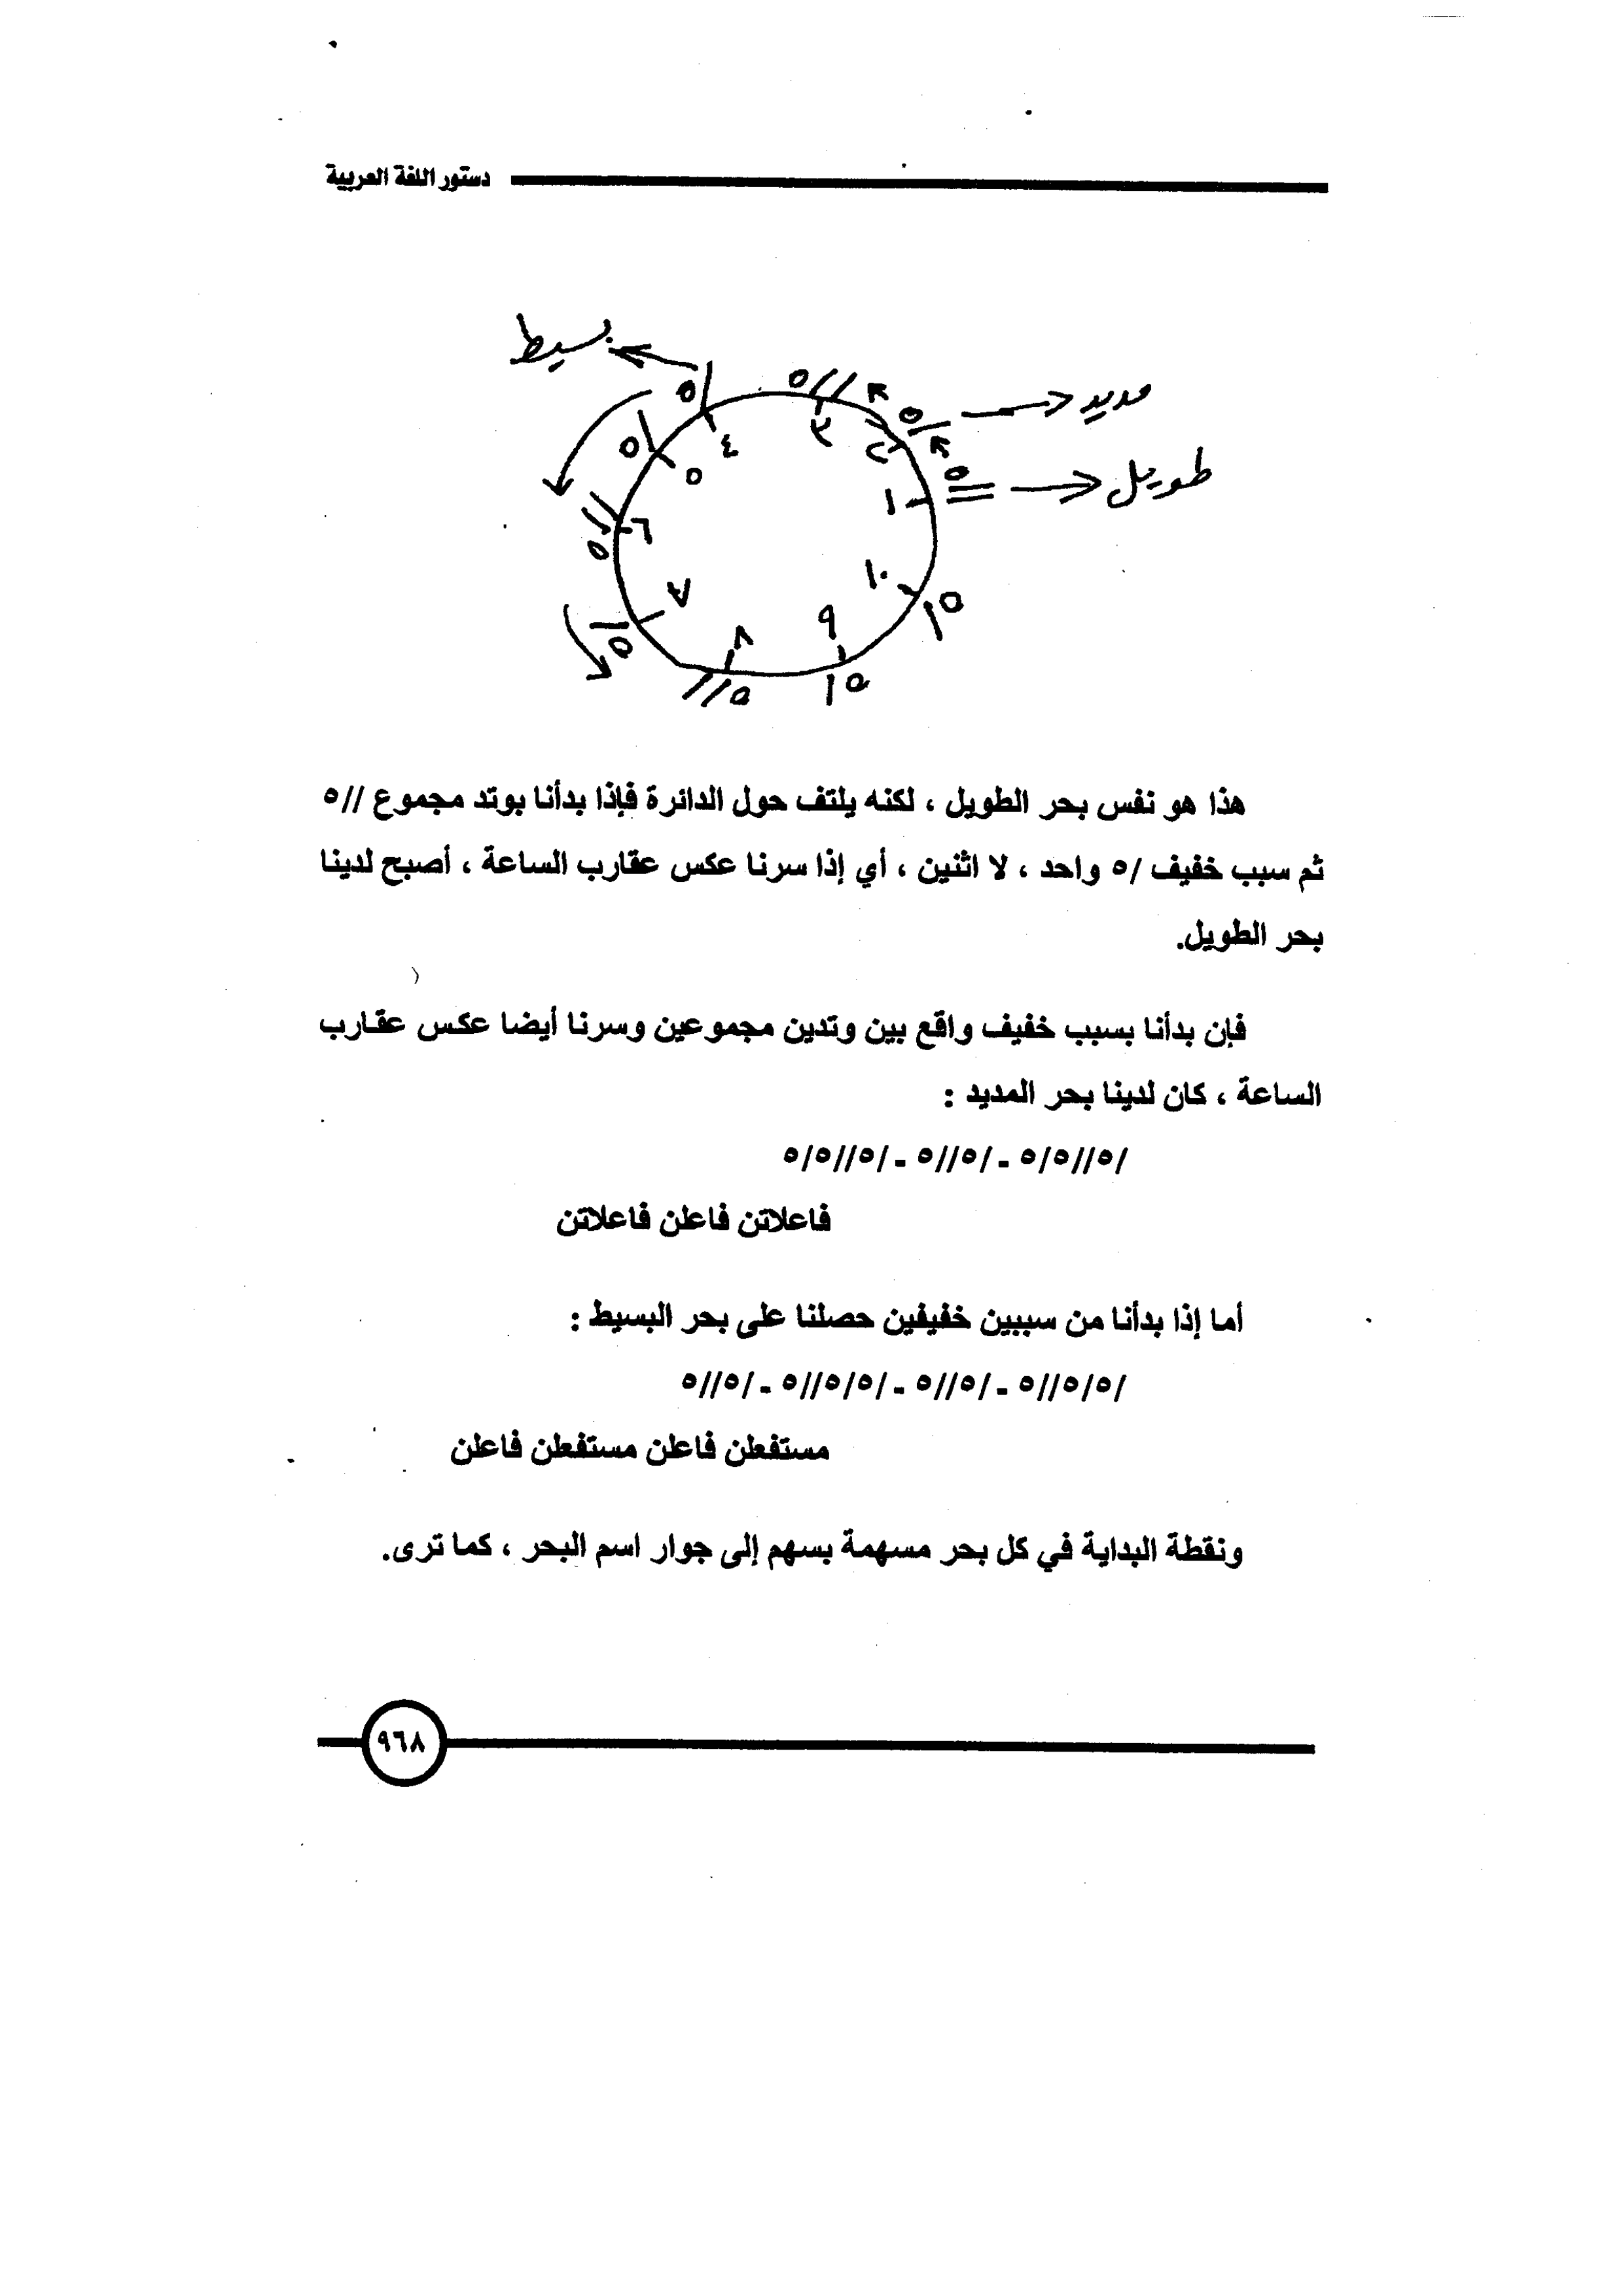 دستور اللغة العربية
بسيط
مديد
طويل
//٥
/٥
//٥
/٥
/٥
//٥
/٥
//٥
/٥
/٥
١
٢
٣
٤
٥
٦
٧
٨
٩
١٠
هذا هو نفس بحر الطويل ، لكنه يلتف حول الدائرة فإذا بدأنا بوتد مجموع //٥
ثم سبب خفيف /٥ واحد ، لا اثنين ، أي إذا سرنا عكس عقارب الساعة ، أصبح لدينا
بحر الطويل.
فإن بدأنا بسبب خفيف واقع بين وتدين مجموعين وسرنا أيضا عكس عقارب
الساعة ، كان لدينا بحر المديد :
/٥//٥/٥ - /٥//٥ - /٥//٥/٥
فاعلاتن فاعلن فاعلاتن
أما إذا بدأنا من سببين خفيفين حصلنا على بحر البسيط :
/٥/٥//٥ - /٥//٥ - /٥/٥//٥ - /٥//٥
مستفعلن فاعلن مستفعلن فاعلن
ونقطة البداية في كل بحر مسهمة بسهم إلى جوار اسم البحر ، كما ترى.
٩٦٨